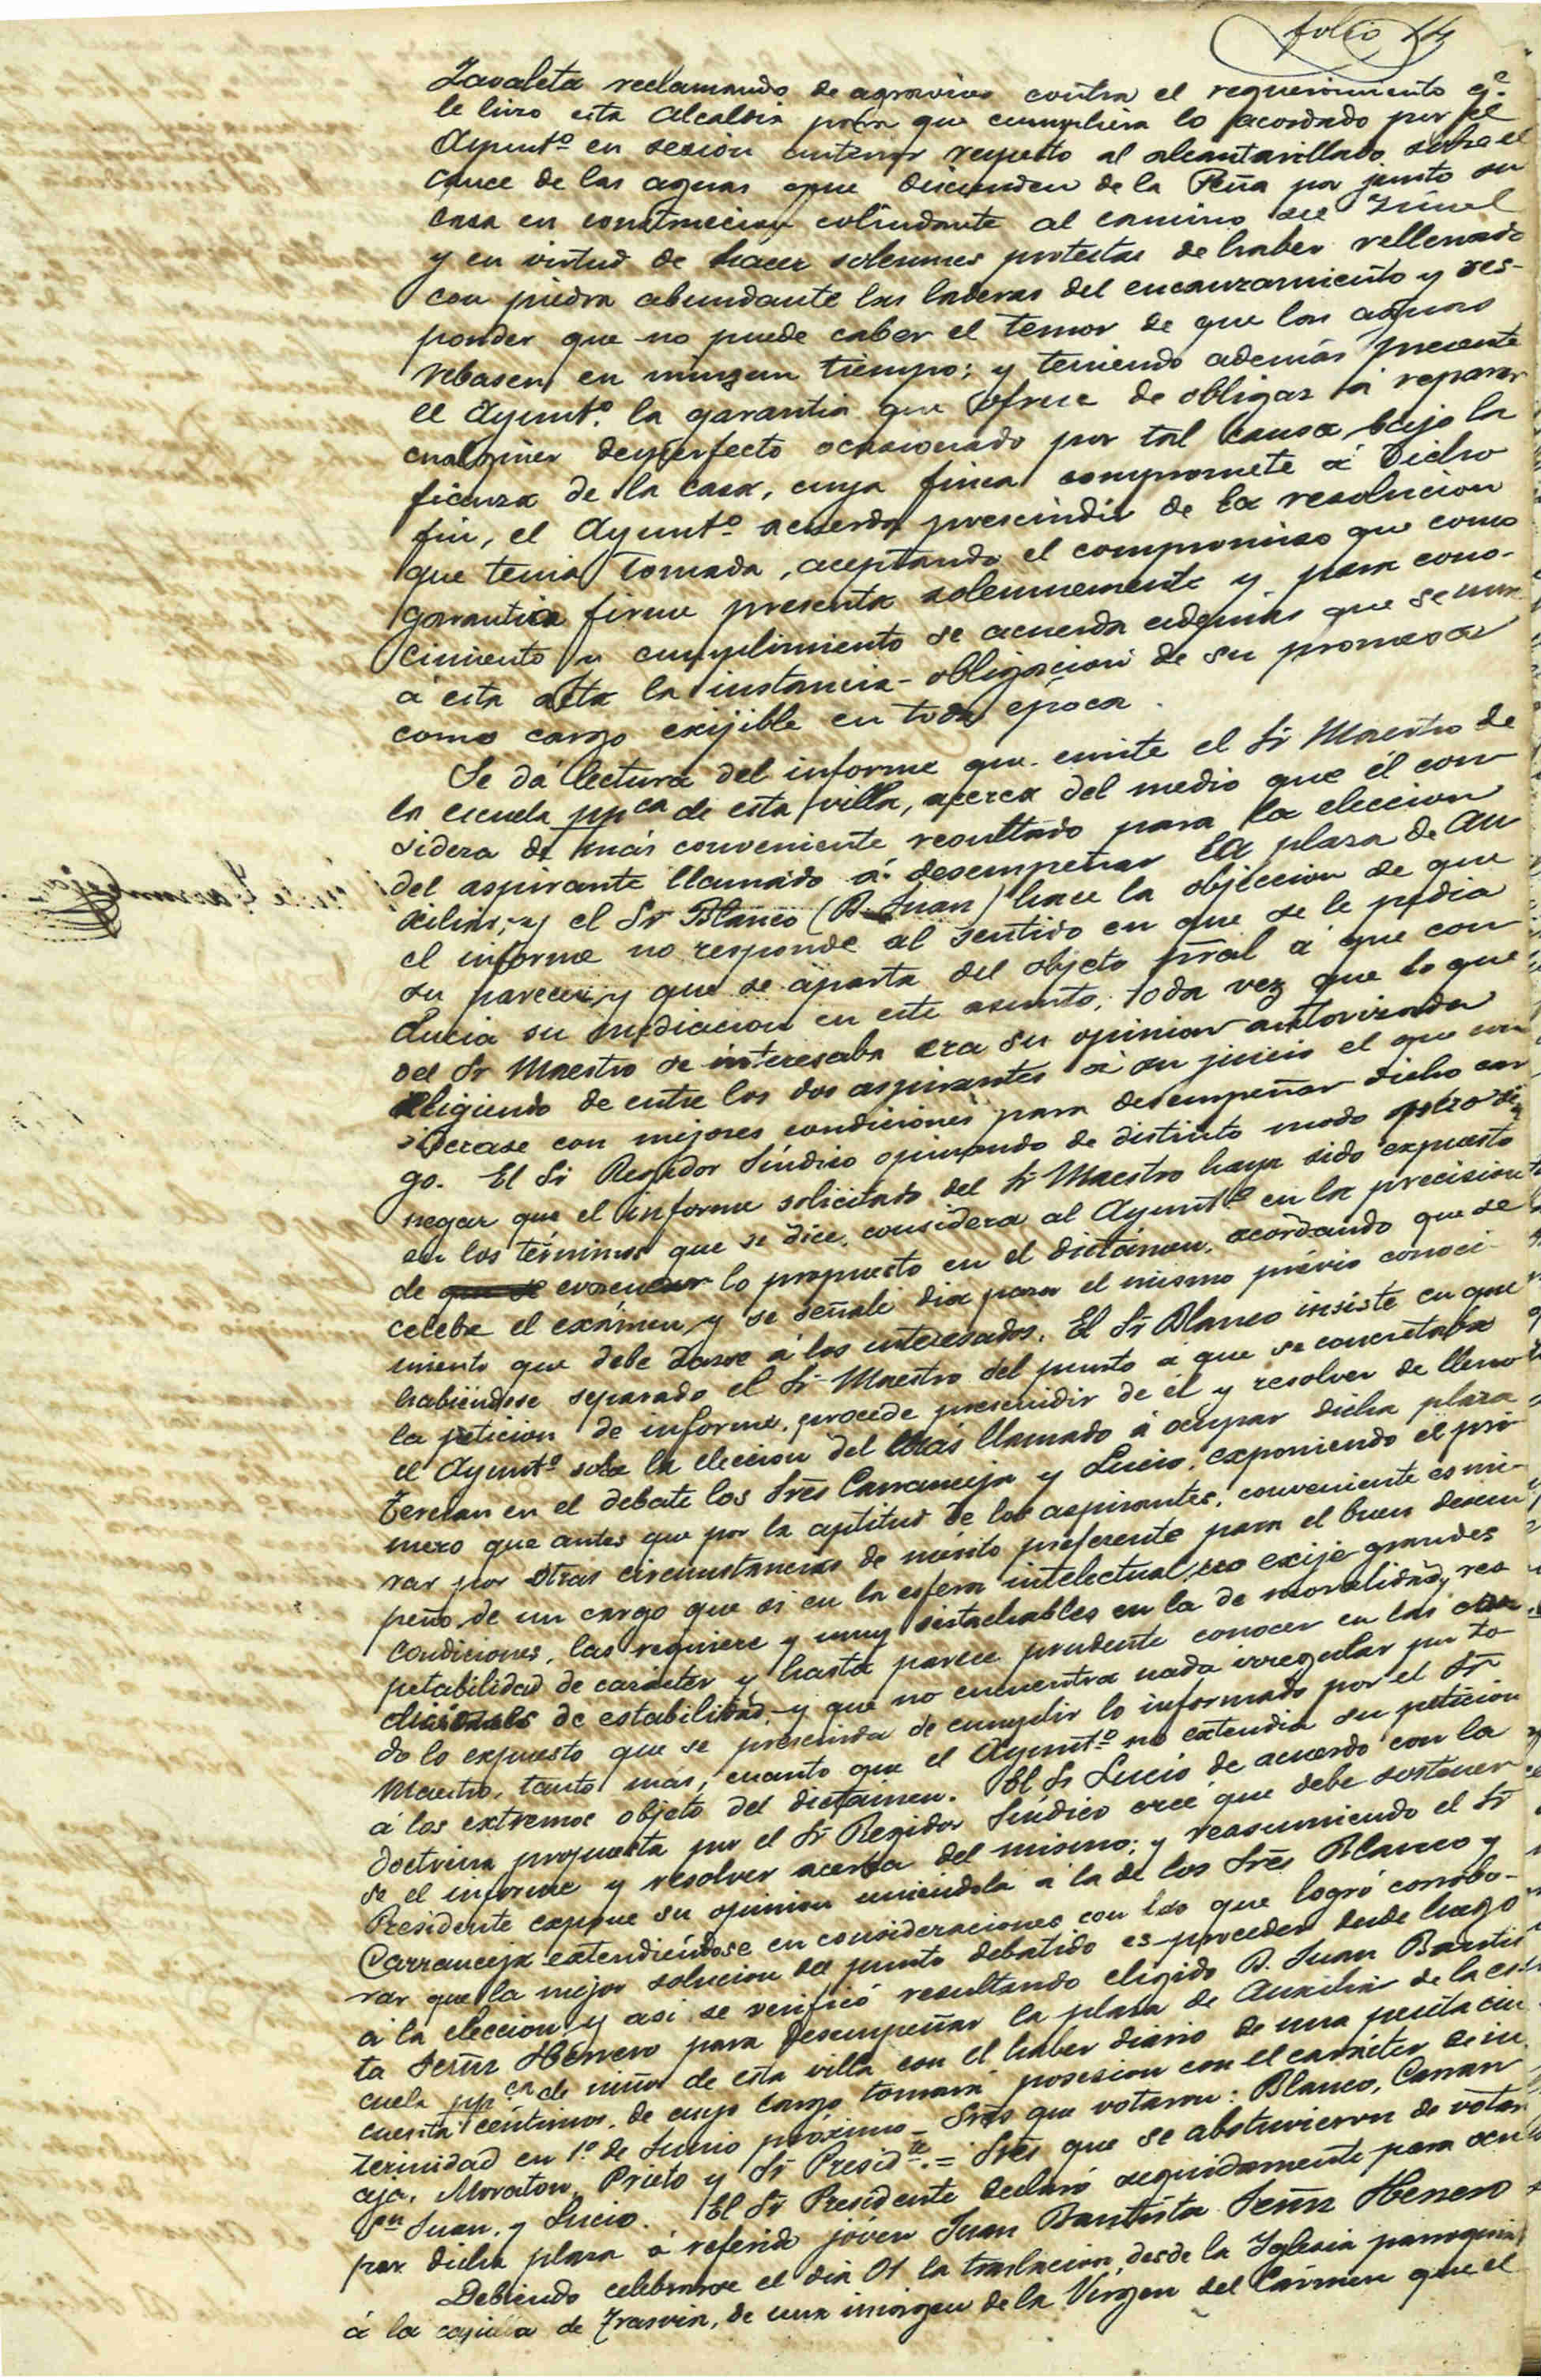 folio 14
Zavaleta reclamando de agravios contra el requerimiento q.e
le hizo esta Alcaldia para que cumpliera lo acordado por el
Ayunt.º en sesión anterior respecto al alcantarillado sobre el
cauce de las aguas que discienden de la Peña por junto su
casa en construccion colindante al camino de
y en virtud de hacer solemnes protestas de haber rellenado
con piedra abundante las laderas del encauzamiento y res-
ponder que no puede caber el temor de que las aguas
rebasen en ningun tiempo; y teniendo además presente
el Ayunt.º la garantia que ofrece de obligar á reparar
cualquier desperfecto ocasionado por tal causa bajo la
fianza de la casa, cuya finca compromete á dicho
fin, el Ayunt.º acuerda prescindir de la resolucion
que tenia tomada, aceptando el compromiso que como
garantia firme presenta solemnemente y para cono-
cimiento y cumplimiento se acuerda además que se una
á esta acta la instancia-obligacion de su promesa
como cargo exijible en toda época.
Se dá lectura del informe que emite el Sr Maestro de
la escuela ppca de esta villa, acerca del medio que él con
sidera de más conveniente resultado para la eleccion
del aspirante llamado á desempeñar la plaza de Au
xiliar, y el Sr Blanco (D. Juan) hace la objeccion de que
el informe no responde al sentido en que se le pedia
su parecer, y que se aparta del objeto pral á que con
ducia su mediacion en este asunto, toda vez que lo que
del Sr Maestro se interesaba era su opinion autorizada
eligiendo de entre los dos aspirantes á su juicio el que con
siderase con mejores condiciones para desempeñar dicho car
go. El Sr Regidor Síndico opinando de distinto modo pero sin
negar que el informe solicitado del Sr Maestro haya sido expuesto
en los términos que se dice, considera al Ayunt.º en la precision
de que se evacuar lo propuesto en el dictámen, acordando que se
celebre el exámen y se señale dia para el mismo prévio conoci-
miento que debe darse á los interesados. El Sr Blanco insiste en que
habiéndose separado el Sr Maestro del punto á que se concretaba
la peticion de informe, procede prescindir de él y resolver de lleno
el Ayunt.º sobre la eleccion del más llamado á ocupar dicha plaza
Tercian en el debate los Srēs Carranceja y Lucio, exponiendo el pri
mero que antes que por la aptitud de los aspirantes, conveniente es mi-
rar por otras circunstancias de mérito preferente para el buen desem
peño de un cargo que si en la esfera intelectual no exije grandes
condiciones, las requiere y muy intachables en la de moralidad, res
petabilidad de carácter y hasta parece prudente conocer en las
de estabilidad,-y que no encuentra nada irregular por to-
do lo expuesto que se prescinda de cumplir lo informado por el Sr
Maestro, tanto más, cuanto que el Ayunt.º no extendia su peticion
á los extremos objeto del dictámen. El Sr Lucio de acuerdo con la
doctrina propuesta por el Sr Regidor Síndico creé que debe sostener
se el informe y resolver acerca del mismo; y reasumiendo el Sr
Presidente expone su opinion uniéndola á la de los Srēs Blanco y
Carranceja extendiéndose en consideraciones con las que logró corrobo-
rar que la mejor solucion del punto debatido es proceder desde luego
á la eleccion y asi se verificó resultando eligido D. Juan Bautis
ta Herrero para desempeñar la plaza de Auxiliar de la es-
cuela ppca de niños de esta villa con el haber diario de una peseta cin
cuenta céntimos, de cuyo cargo tomará posesion con el carácter de in
terinidad en 1.º de Junio próximo-Srēs que votaron: Blanco, Carran
ceja, Moraton, Prieto y Sr Presid.te = Srēs que se abstuvieron de votar
Juan, y Lucio. El Sr Presidente declaró seguidamente para ocu
par dicha plaza á referido jóven Juan Bautista Herrero
Debiendo celebrarse el dia 01 la traslacion, desde la Iglesia parroquial
á la capilla de Trasvia, de una imágen de la Vírgen del Cármen que el